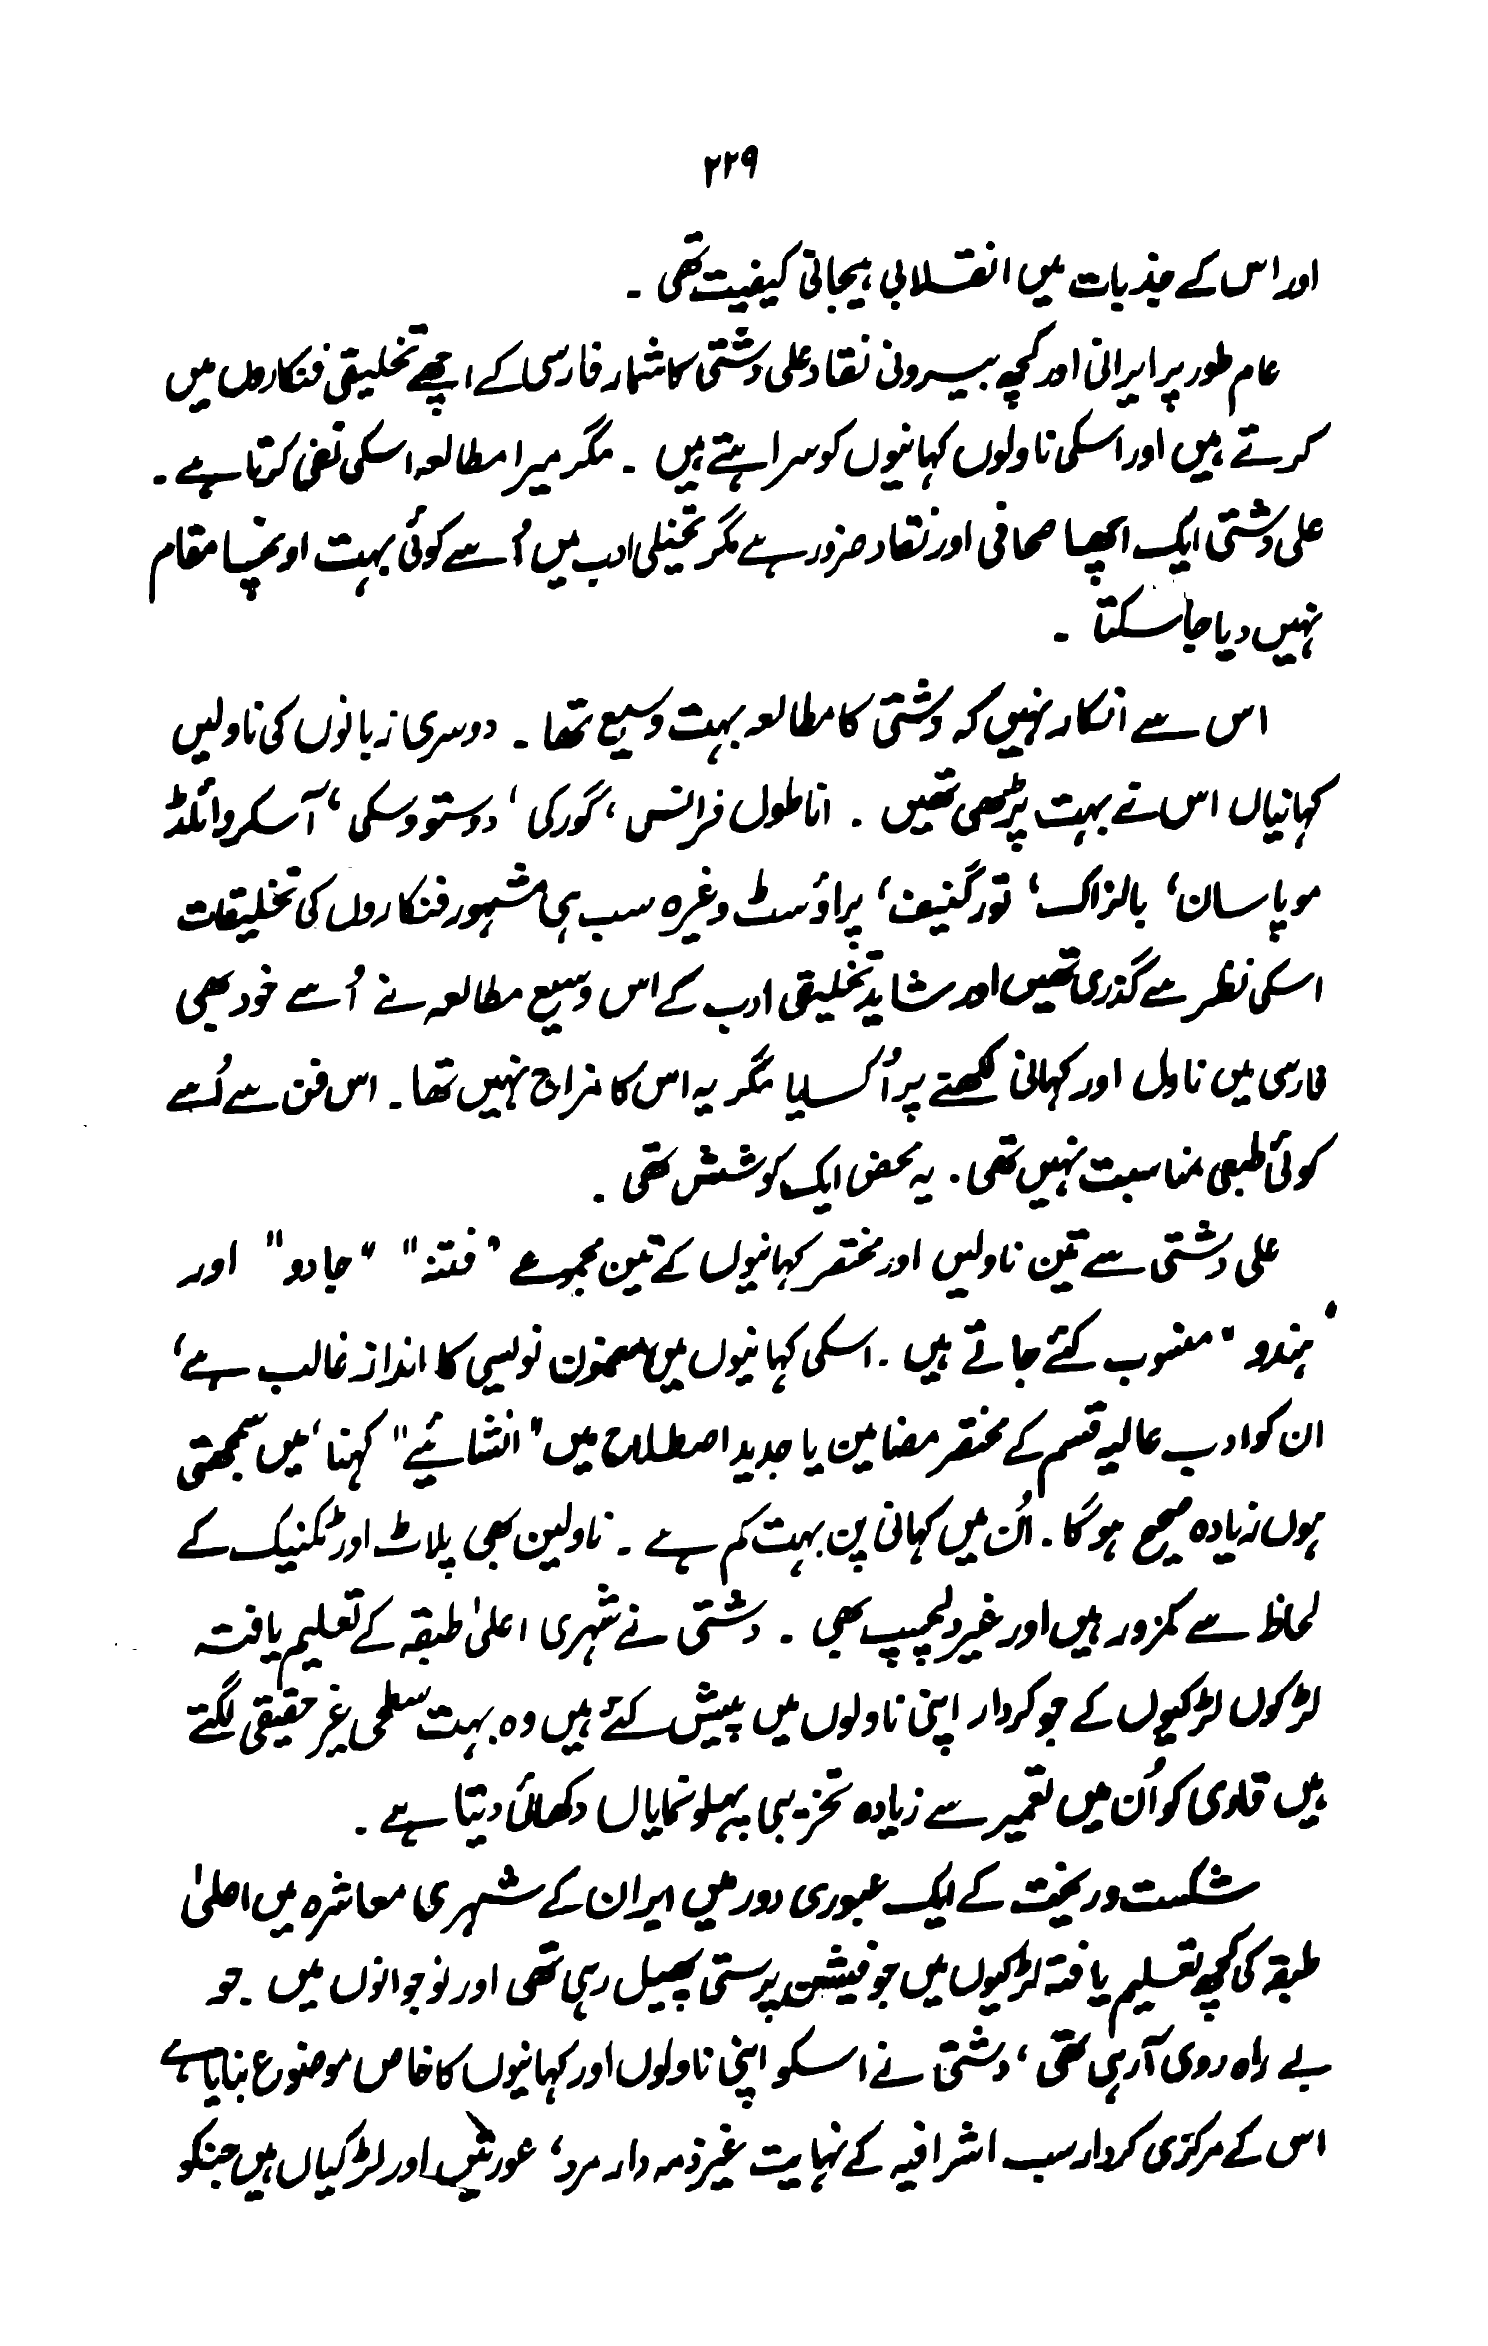 ۲۲۹
اور اس کے جذبات میں انقلابی ہیجانی کیفیت تھی ۔
عام طور پر ایرانی اور کچھ بیرونی نقاد علی دشتی کا شمار فارسی کے اچھے تخلیقی فنکاروں میں
کرتے ہیں اور اسکی ناولوں کہانیوں کو سراہتے ہیں ۔ مگر میرا مطالعہ اسکی نفی کرتا ہے ۔
علی دشتی ایک اچھا صحافی اور نقاد ضرور ہے مگر تخیلی ادب میں اُسے کوئی بہت اونچا مقام
نہیں دیا جا سکتا ۔
اس سے انکار نہیں کہ دشتی کا مطالعہ بہت وسیع تھا ۔ دوسری زبانوں کی ناولیں
کہانیاں اس نے بہت پڑھی تھیں ۔ اناطول فرانس، گورکی، دوستووسکی، آسکر وائلڈ
موپاسان، بالزاک، تورگنیف، پراؤسٹ وغیرہ سب ہی مشہور فنکاروں کی تخلیقات
اسکی نظر سے گذری تھیں اور شاید تخلیقی ادب کے اس وسیع مطالعہ نے اُسے خود بھی
فارسی میں ناول اور کہانی لکھنے پر اُکسایا مگر یہ اس کا مزاج نہیں تھا ۔ اس فن سے اُسے
کوئی طبعی مناسبت نہیں تھی ۔ یہ محض ایک کوشش تھی ۔
علی دشتی سے تین ناولیں اور مختصر کہانیوں کے تین مجموعے "فتنہ" "جادو" اور
"ہندو" منسوب کئے جاتے ہیں ۔ اسکی کہانیوں میں مضمون نویسی کا انداز غالب ہے،
ان کو ادب عالیہ قسم کے مختصر مضامین یا جدید اصطلاح میں "انشائیے" کہنا، میں سمجھتی
ہوں زیادہ صحیح ہوگا ۔ اُن میں کہانی پن بہت کم ہے ۔ ناولیں بھی پلاٹ اور ٹکنیک کے
لحاظ سے کمزور ہیں اور غیر دلچسپ بھی ۔ دشتی نے شہری اعلیٰ طبقہ کے تعلیم یافتہ
لڑکوں لڑکیوں کے جو کردار اپنی ناولوں میں پیش کئے ہیں وہ بہت سطحی غیر حقیقی لگتے
ہیں قاری کو اُن میں تعمیر سے زیادہ تخریبی پہلو نمایاں دکھائی دیتا ہے ۔
شکست و ریخت کے ایک عبوری دور میں ایران کے شہری معاشرہ میں اعلیٰ
طبقہ کی کچھ تعلیم یافتہ لڑکیوں میں جو فیشن پرستی پھیل رہی تھی اور نوجوانوں میں ۔ جو
بے راہ روی آ رہی تھی، دشتی نے اسکو اپنی ناولوں اور کہانیوں کا خاص موضوع بنایا ہے
اس کے مرکزی کردار سب اشرافیہ کے نہایت غیر ذمہ دار مرد، عورتیں اور لڑکیاں ہیں جنکو